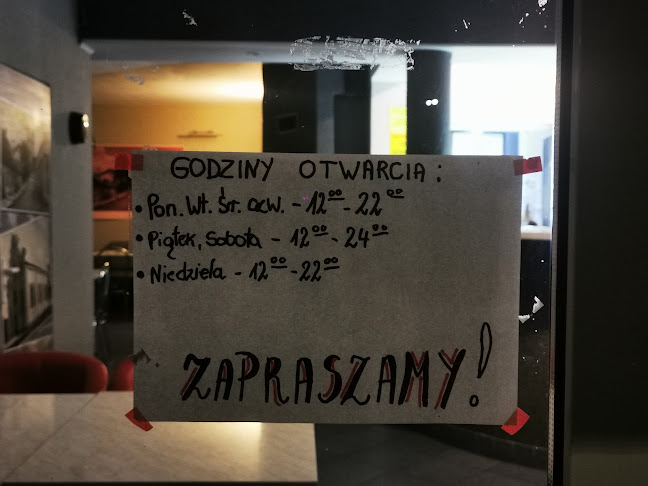 GODZINY OTWARCIA:
• Pon. Wt. Śr. czw. - 12⁰⁰ - 22⁰⁰
• Piątek, Sobota - 12⁰⁰ - 24⁰⁰
• Niedziela - 12⁰⁰ - 22⁰⁰
ZAPRASZAMY!